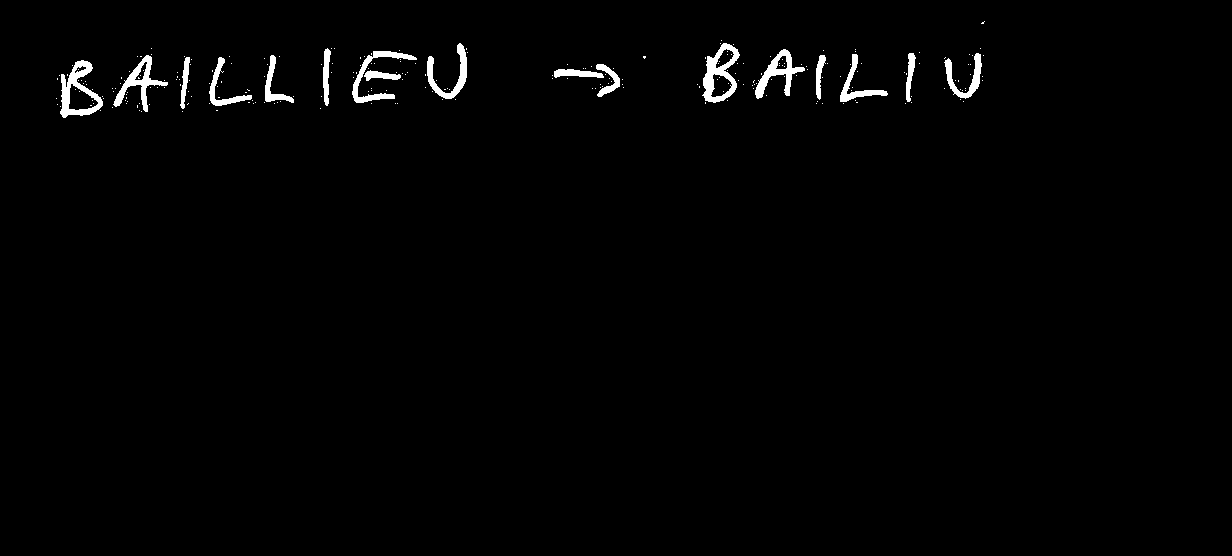 BAILLIEU → BAILIU